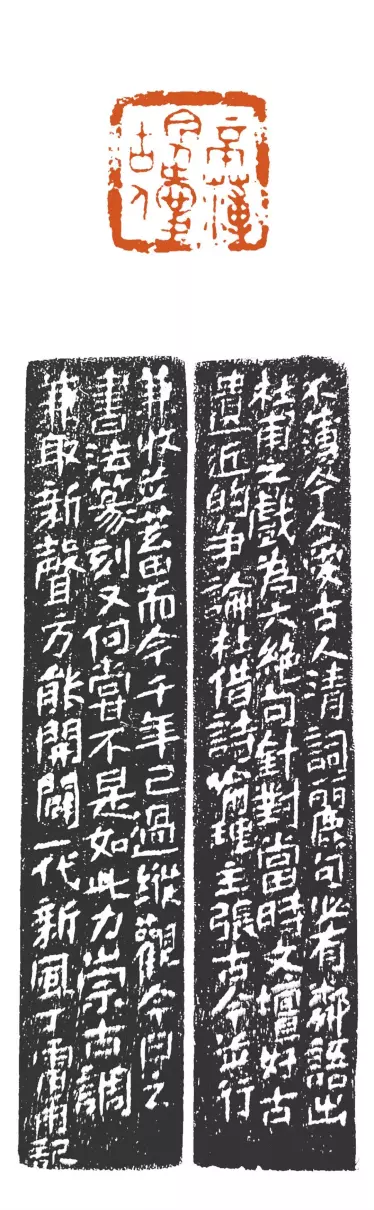 不薄
今人愛
古人
不薄今人愛古人清詞麗句必有鄰語出
杜甫之戲為六絶句針對當時文壇好古
遺近的爭論杜借詩論理主張古今並行
兼收並蓄而今千年已過縱觀今日之
書法篆刻又何嘗不是如此力崇古調
兼取新聲方能開闢一代新風丁酉記